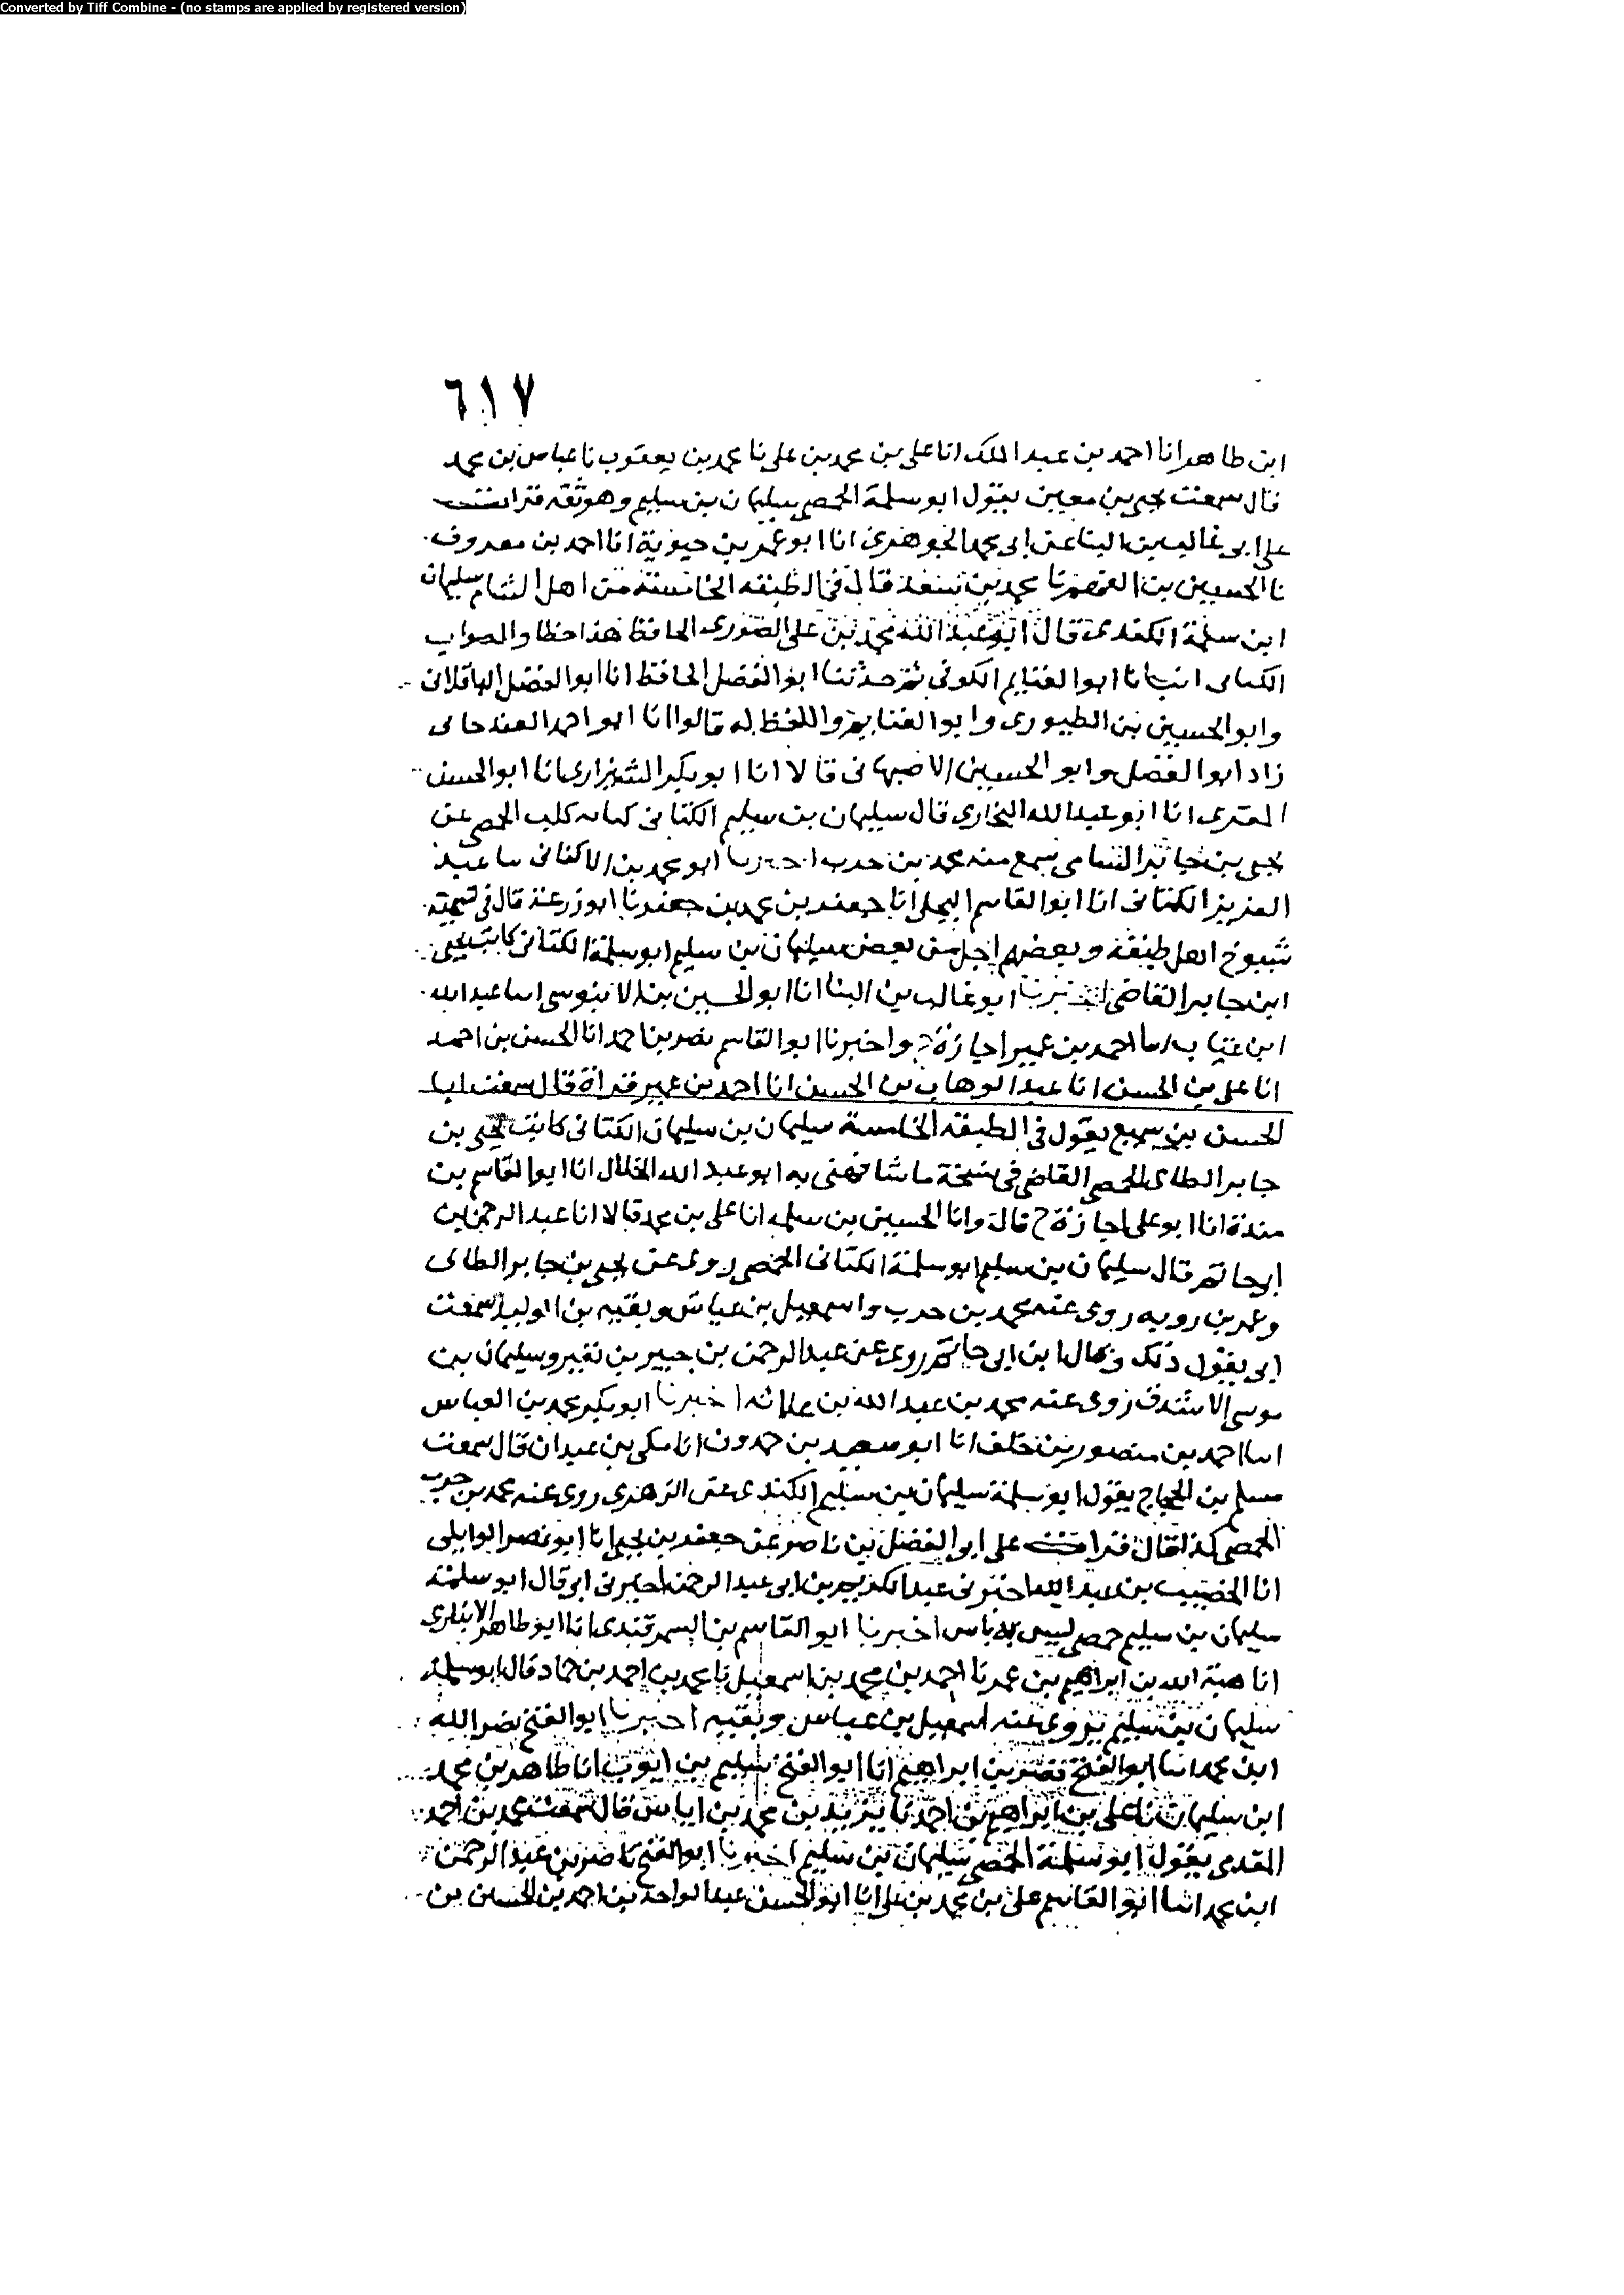 Converted by Tiff Combine - (no stamps are applied by registered version)
٦١٧
ابن طاهر انا احمد بن عبد الملك انا على بن محمد بن على نا محمد بن يعقوب نا عباس بن محمد
قال سمعت يحيى بن معين يقول ابو سلمة الحمصي سليمان بن سليم وهو ثقه قرات
على ابى غالب بن البنا عن ابى محمد الجوهري انا ابو عمر بن حيوية انا احمد بن معروف
نا الحسين بن الفهم نا محمد بن سعد قال في الطبقه الخامسة من اهل الشام سليمان
ابن سلمة الكندى قال ابو عبد الله محمد بن على الصورى الحافظ هذا خطا والصواب
الكنانى انبانا ابو الغنايم الكوفي ثم حدثنا ابو الفضل الحافظ انا ابو الفضل الباقلانى
وابو الحسين بن الطيورى وابو الغنايم واللفظ له قالوا انا ابو احمد الغندجانى
زاد ابو الفضل وابو الحسين الاصبهانى قالا انا ابو بكر الشيرازى انا ابو الحسن
المقرى انا ابو عبد الله البخاري قال سليمان بن سليم الكنانى الحمصى عن
يحيى بن جابر الشامى سمع منه محمد بن حرب اخبرنا ابو محمد بن الاكفانى نا عبد
العزيز الكنانى انا ابو القاسم البجلى انا جعفر بن محمد بن جعفر نا ابو زرعة قال في تسمية
شيوخ اهل طبقه وبعضهم اجل من بعض سليمان بن سليم ابو سلمة الكنانى كاتب يحيى
ابن جابر القاضى اخبرنا ابو غالب بن البنا انا ابو الحسين بن الابنوسى انا عبد الله
ابن عتاب انا احمد بن عمير اجازة ح واخبرنا ابو القاسم نصر بن احمد انا الحسن بن احمد
انا على بن الحسن انا عبد الوهاب بن الحسن انا احمد بن عمير قراة قال سمعت ابا
الحسن بن سميع يقول في الطبقه الخامسة سليمان بن سليمان الكنانى كاتب يحيى بن
جابر الطاى الحمصى القاضى في نسخة ما شافهنى به ابو عبد الله الخلال انا ابو القاسم بن
مندة انا ابو على اجازة ح قال وانا الحسين بن سلمه انا على بن محمد قالا انا عبد الرحمن بن
ابى حاتم قال سليمان بن سليم ابو سلمة الكنانى الحمصى روى عن يحيى بن جابر الطاى
وعمر بن روبه روى عنه محمد بن حرب واسمعيل بن عياش وبقيه بن الوليد سمعت
ابى يقول ذلك وقال ابن ابى حاتم روى عن عبد الرحمن بن جبير بن نفير وسليمان بن
موسى الاشدق روى عنه محمد بن عبد الله بن علاثه اخبرنا ابو بكر محمد بن العباس
انا احمد بن منصور بن خلف انا ابو سعيد بن حمدون انا مكى بن عبدان قال سمعت
مسلم بن الحجاج يقول ابو سلمة سليمان بن سليم الكندى عن الزهري روى عنه محمد بن حرب
الحمصى كذا قال قرات على ابو الفضل بن ناصر عن جعفر بن يحيى انا ابو نصر الوايلى
انا الخصيب بن عبد الله اخبرنى عبد الكريم بن ابى عبد الرحمن اخبرنى ابى قال ابو سلمة
سليمان بن سليم حمصى ليس به باس اخبرنا ابو القاسم بن السمرقندى انا ابو طاهر الانبارى
انا هبة الله بن ابراهيم بن عمر نا احمد بن محمد بن اسمعيل نا محمد بن احمد بن حماد قال ابو سلمه
سليمان بن سليم يروى عنه اسمعيل بن عياش وبقيه اخبرنا ابو الفتح نصر الله
ابن محمد انا ابو الفتح نصر بن ابراهيم انا ابو الفتح سليم بن ايوب انا طاهر بن محمد
ابن سليمان نا على بن ابراهيم بن احمد نا يزيد بن محمد بن اياس قال سمعت محمد بن احمد
المقدمى يقول ابو سلمة الحمصى سليمان بن سليم اخبرنا ابو الفتح ناصر بن عبد الرحمن
ابن محمد انا ابو القاسم على بن محمد بن على انا ابو الحسن عبد الواحد بن احمد بن الحسين بن